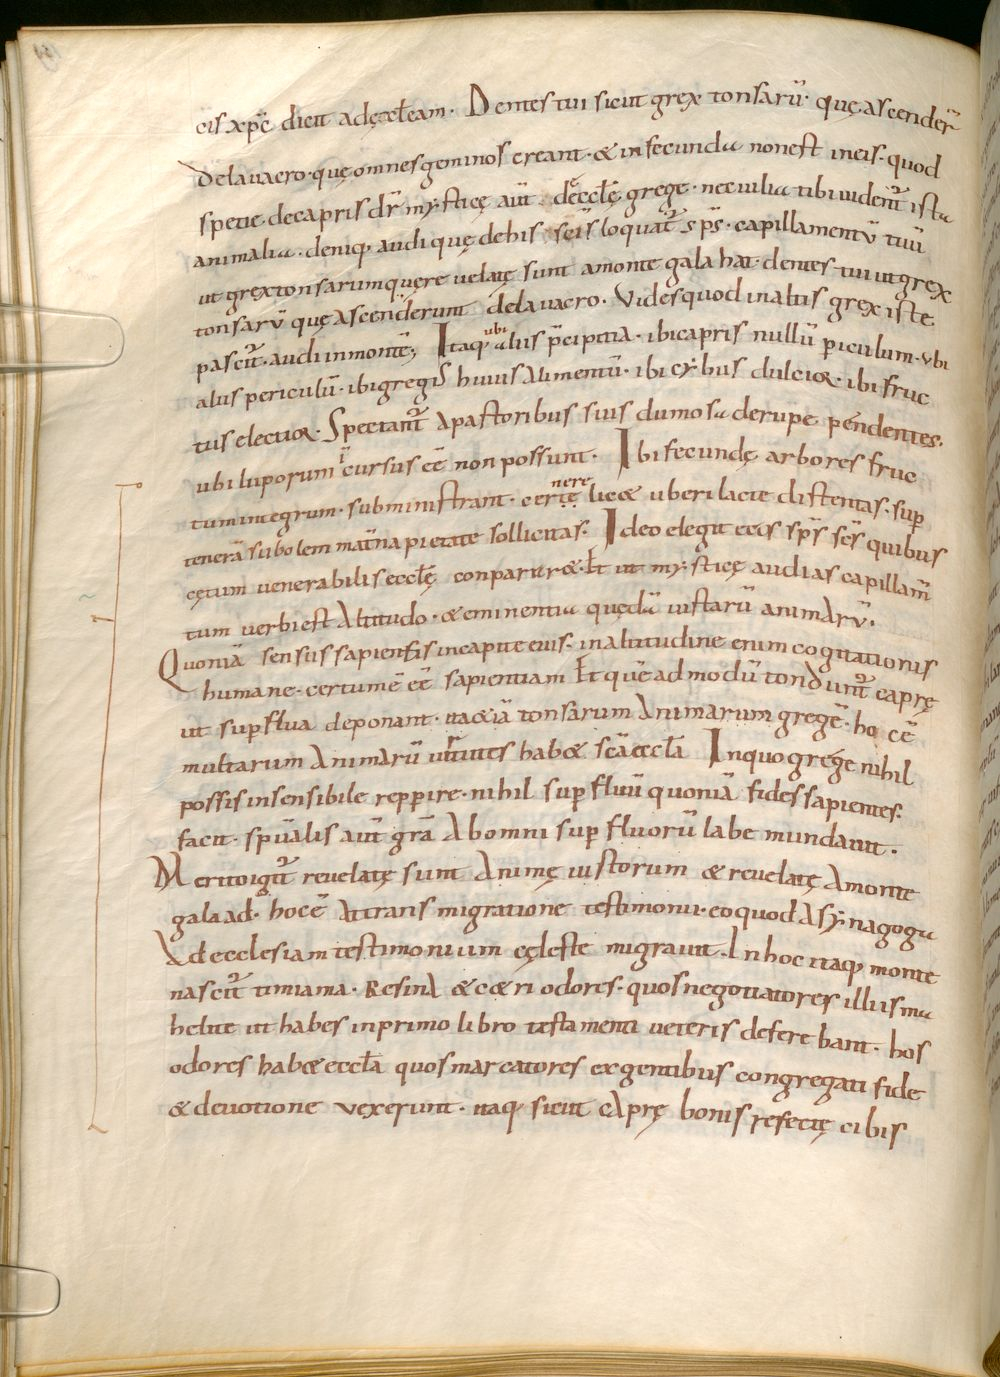 cis xp̄c dicit ad ęccl̄eam. Dentes tui sicut grex tonsarū. quę ascender̄
de lavacro. quę omnes geminos creant. & infecunda non est in eis. quod
specie de capris dr̄ mysticę aūt. de eccl̄ę grege. nec vilia tibi videnť ista
animalia. deniq; audi quę de his sc̄is loquať sp̄s. capillamentū tuū
ut grex tonsarum quęre velatę sunt a monte galahat. dentes tui ut grex
tonsarū quę ascenderunt de lavacro. Vides quod in altis grex iste
pasciť. audi in monte; Itaq; ubi alus p̄cipitia. ibi capris nullū periculum. ubi
alus periculū. ibi gregis huius alimentū. ibi cybus dulcior. ibi fruc
tus electior. Spectanť a pastoribus suis dumosa de rupe pendentes.
ubi luporum īcursus eē non possunt. Ibi fecundę arbores fruc
tum integrum. subministrant. cernere licę& uberi lacte distentas. sup
tenerā subolem mat̄na pietate sollicitas. Ideo elegit eas sp̄s sc̄s quibus
cętum venerabilis eccl̄ę conparar&. Et ut mysticę audias capillam̄
tum verbi est Altitudo. & eminentia quędā iustarū animarū.
Quoniā sensus sapientis in capite eius. in altitudine enim cogitationis
humane. certum ē eē sapientiam Et quēadmodū tondunť caprę
ut sup̄flua deponant. ita & iā tonsarum Animarum gregē. hoc ē
multarum Animarū virtutes hab& sc̄a eccl̄a In quo grege nihil
possis insensibile repp̄ire. nihil sup̄fluū quoniā fides sapientes.
facit. sp̄ualis aūt gr̄a Ab omni sup̄fluorū labe mundavit.
Merito igiť revelatę sunt Animę iustorum & revelatę A monte
galaad. hoc ē A ttransmigratione testimonii. eo quod A synagoga
Ad ecclesiam testimonium cęleste migravit. In hoc itaq; monte
nasciť timiama. Resina & c&eri odores. quos negotiatores illi isma
helite ut habes in primo libro testamenti veteris deferebant. hos
odores hab& eccl̄a quos marcatores ex gentibus congregati fide
& devotione vexerunt. itaq; sicut caprę bonis refectę cibis